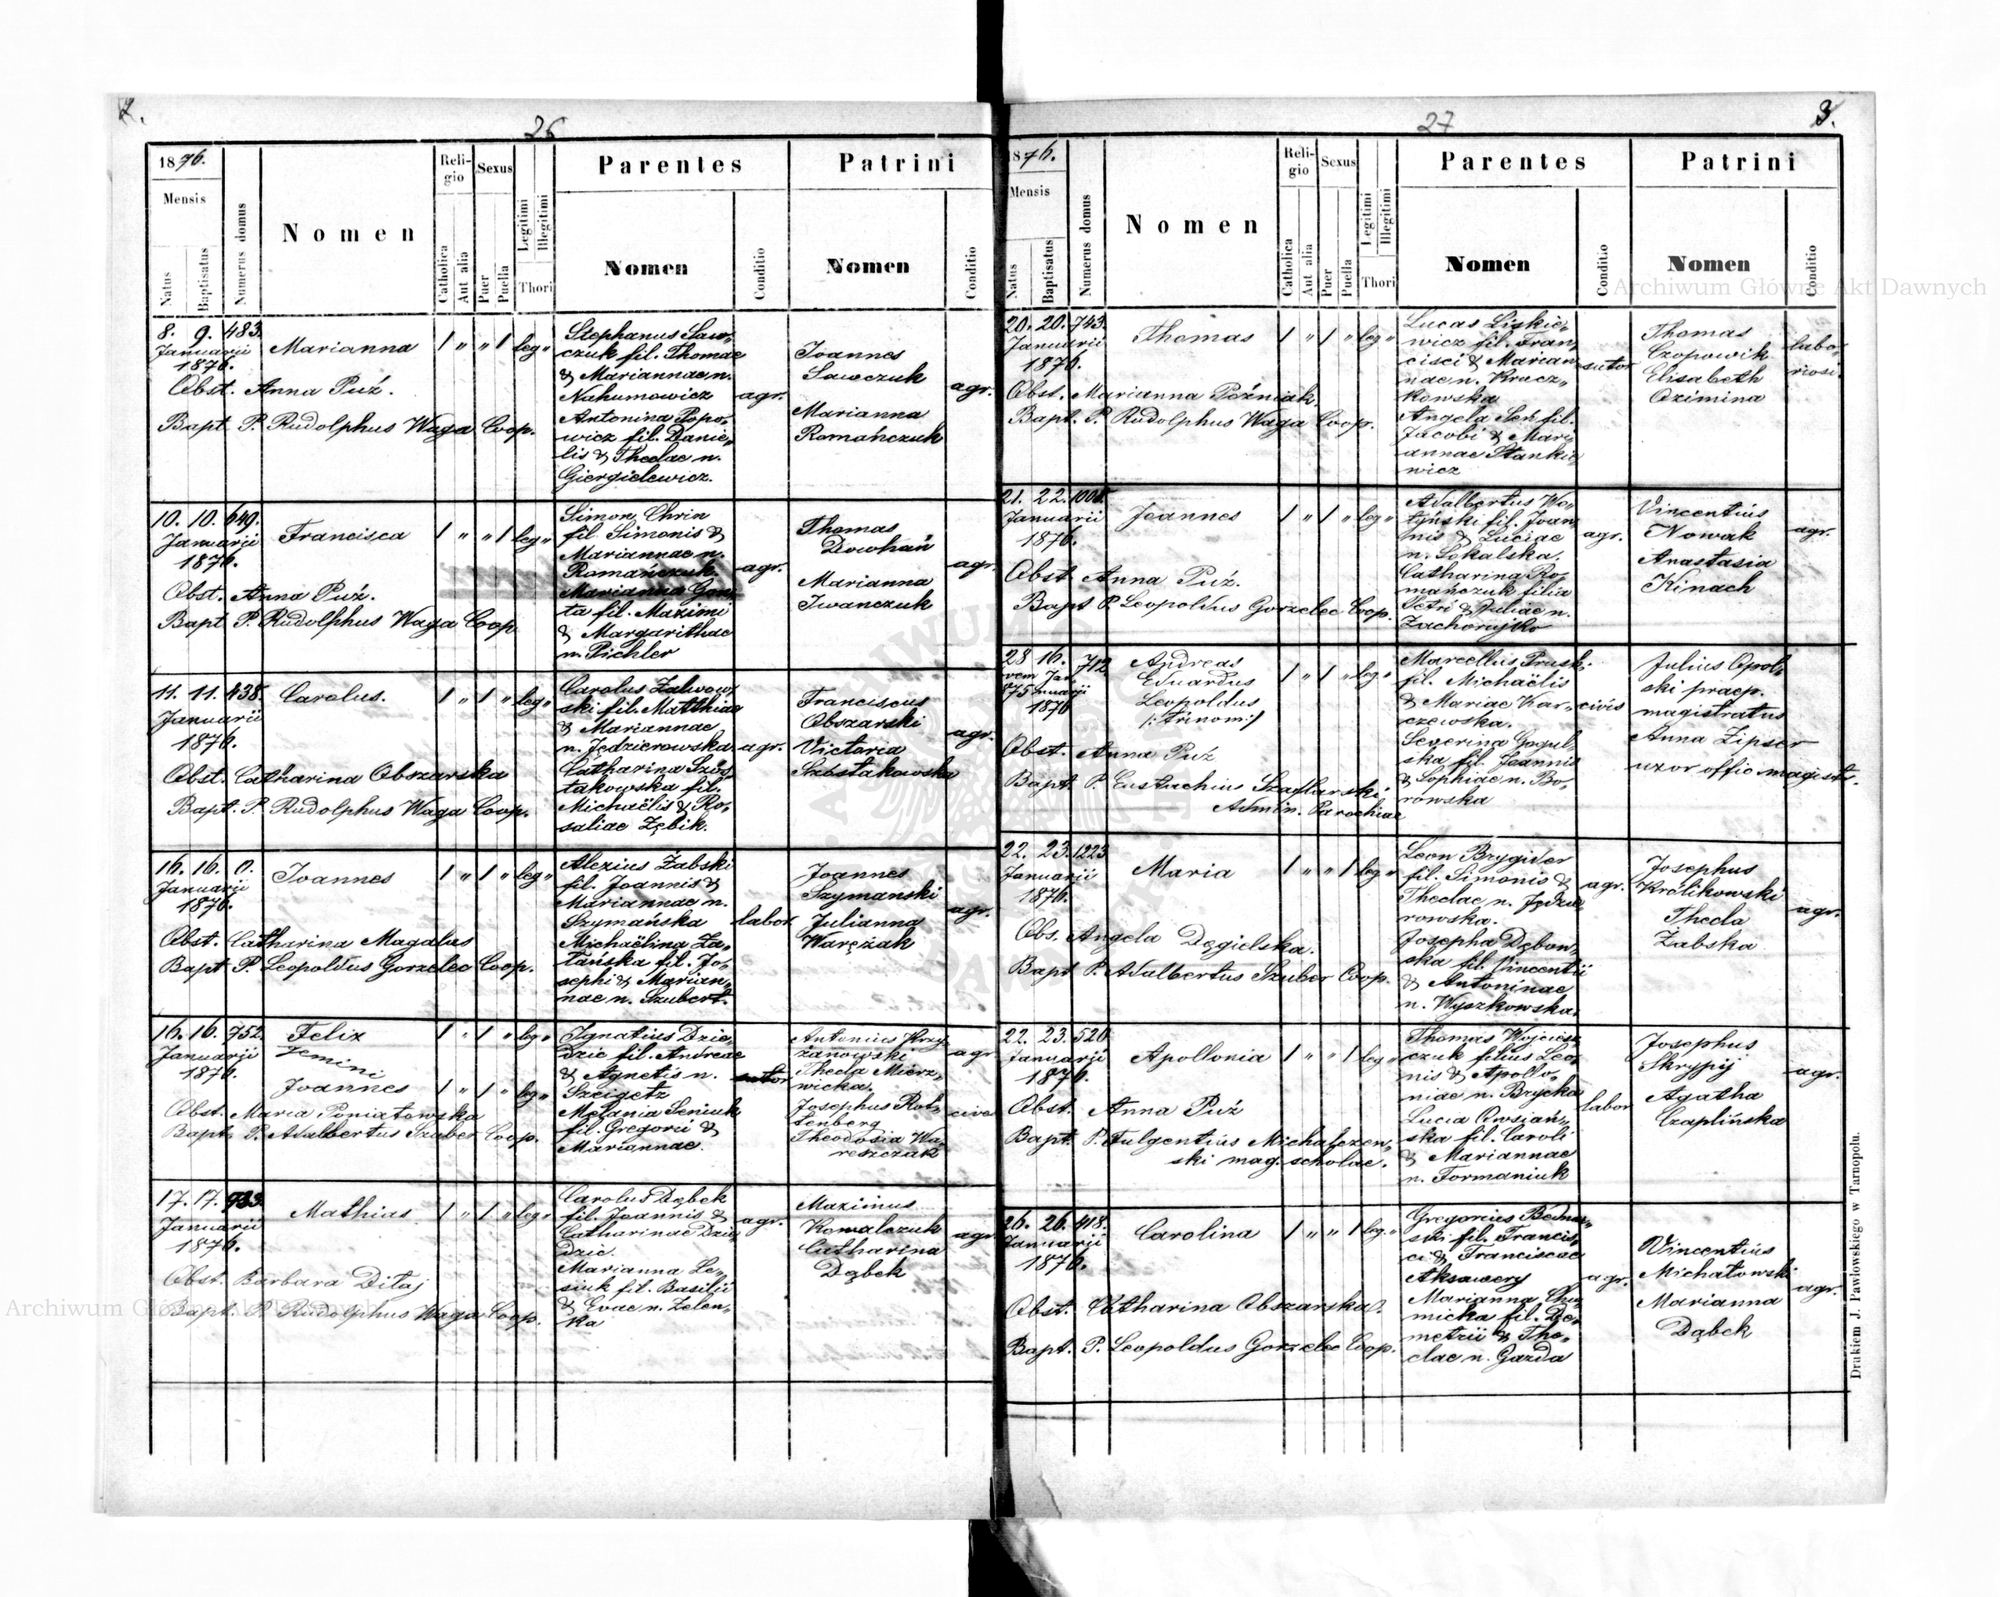 2.
26
1876.
Mensis
Natus
Baptisatus
Numerus domus
Nomen
Religio
Catholica
Aut alia
Sexus
Puer
Puella
Legitimi
Illegitimi
Thori
Parentes
Nomen
Conditio
Patrini
Nomen
Conditio
8. 9. 483.
Januarii
1876.
Marianna
1 " " 1 leg "
Obst. Anna Puź.
Bapt. P. Rudolphus Waga Coop.
Stephanus Saw„
czuk fil. Thomae
& Mariannae n.
Nahumowicz
Antonina Popo„
wicz fil. Danie„
lis & Theclae n.
Giergielewicz.
agr.
Joannes
Sawczuk
Marianna
Romańczuk
agr.
10. 10. 649.
Januarii
1876.
Francisca
1 " " 1 leg "
Obst. Anna Puź.
Bapt P. Rudolphus Waga Coop
Simon Chrin
fil Simonis &
Mariannae n.
Romańczuk.
Marianna Gon„
ta fil. Maximi
& Margarithae
n. Pichler
agr.
Thomas
Dowhań
Marianna
Iwańczuk
agr.
11. 11. 438.
Januarii
1876.
Carolus.
1 " 1 " leg "
Obst. Catharina Obszarska
Bapt. P. Rudolphus Waga Coop.
Carolus Zalwow„
ski fil. Matthiae
& Mariannae
n. Jędzierowska
Catharina Szós„
takowska fil.
Michaëlis & Ro„
saliae Zębik.
agr.
Franciscus
Obszarski
Victoria
Szóstakowska
agr.
16. 16. 0.
Januarii
1876.
Joannes
1 " 1 " leg "
Obst. Catharina Magalas
Bapt P. Leopoldus Gorzelec Coop.
Alexius Żabski
fil. Joannis &
Mariannae n.
Szymańska
Michaëlina Za„
tańska fil. Jo„
sephi & Marian„
nae n. Szubert.
labor.
Joannes
Szymanski
Julianna
Warężak
agr.
16. 16. 752.
Januarii
1876.
Felix
Jemini
Joannes
1 " 1 " leg "
1 " 1 " leg "
Obst. Maria Poniatowska
Bapt. P. Adalbertus Szuber Coop.
Ignatius Dzie„
dzic fil. Andreae
& Agnetis n.
Szeigetz
Melania Seniuk
fil. Gregorii &
Mariannae.
sutor
Antonius Krzy„
żanowski
Thecla Mierz„
wicka.
Josephus Rot„
tenberg
Theodosia Wa„
reszczak
agr
cives
17. 17. 933.
Januarii
1876.
Mathias
1 " 1 " leg "
Obst. Barbara Ditaj
Bapt. P. Rudolphus Waga Coop.
Carolus Dąbek
fil. Joannis &
Catharinae Dzie„
dzic.
Marianna Le„
siuk fil. Basilii
& Evae n. Zelen„
ka
agr.
Maximus
Kowalczuk
Catharina
Dąbek
agr.
27
3.
1876.
Mensis
Natus
Baptisatus
Numerus domus
Nomen
Religio
Catholica
Aut alia
Sexus
Puer
Puella
Legitimi
Illegitimi
Thori
Parentes
Nomen
Conditio
Patrini
Nomen
Conditio
20. 20. 743.
Januarii
1876.
Thomas
1 " 1 " leg "
Obst. Marianna Poźniak.
Bapt. P. Rudolphus Waga Coop.
Lucas Liskie„
wicz fil. Fran„
cisci & Marian„
nae n. Krucz„
kowska
Angela Seń fil.
Jacobi & Mari„
annae Stankie„
wicz
sutor
Thomas
Czopowik
Elisabeth
Ozimina
labo„
riosi.
21. 22. 1008.
Januarii
1876.
Joannes
1 " 1 " leg "
Obst Anna Puź.
Bapt P. Leopoldus Gorzelec Coop.
Adalbertus Wo„
tyński fil. Joan„
nis & Luciae
n. Sokalska.
Catharina Ro„
mańczuk filia
Petri & Juliae n.
Zachorujko
agr.
Vincentius
Nowak
Anastasia
Kinach
agr.
28 16. 712
vem. Jan
875 nuarii
1876
Andreas
Eduardus
Leopoldus
/:Trinom:/
1 " 1 " leg "
Obst. Anna Puź
Bapt P. Eustachius Szaflarski
Admin. Parochiae
Marcellus Pruski
fil. Michaëlis
& Mariae Kar„
czewska.
Severina Gogul„
ska fil. Joannis
& Sophiae n. Bo„
rowska
civis
Julius Opol„
ski praep.
magistratus
Anna Zipser
uxor offic magistr.
22. 23. 1223
Januarii
1876.
Maria
1 " " 1 leg "
Obs. Angela Dęgielska.
Bapt P. Adalbertus Szuber Coop.
Leon Brygider
fil. Simonis &
Theclae n. Jędzie
rowska.
Josepha Dębow„
ska fil. Vincentii
& Antoninae
n. Wyszkowska.
agr.
Josephus
Królikowski
Thecla
Żabska
agr.
22. 23. 520
Januarii
1876.
Apollonia
1 " " 1 leg "
Obst. Anna Puź
Bapt. P. Fulgentius Michalczew„
ski mag. scholae.
Thomas Wojciesz„
czuk filius Leo„
nis & Apollo„
niae n. Brycka
Lucia Owsiań„
ska fil. Caroli
& Mariannae
n. Formaniuk
labor
Josephus
Skrypij
Agatha
Czaplińska
agr.
26. 26. 418.
Januarii
1876.
Carolina
1 " " 1 leg. "
Obst. Catharina Obszarska.
Bapt. P. Leopoldus Gorzelec Coop.
Gregorius Bednar„
ski fil. Francis„
ci & Franciscae
Aksawery
Marianna Chu„
micka fil. De„
metrii & The„
clae n. Gazda
agr.
Vincentius
Michałowski
Marianna
Dąbek
agr.
Drukiem J. Pawłowskiego w Tarnopolu.
Archiwum Główne Akt Dawnych
Archiwum Główne Akt Dawnych